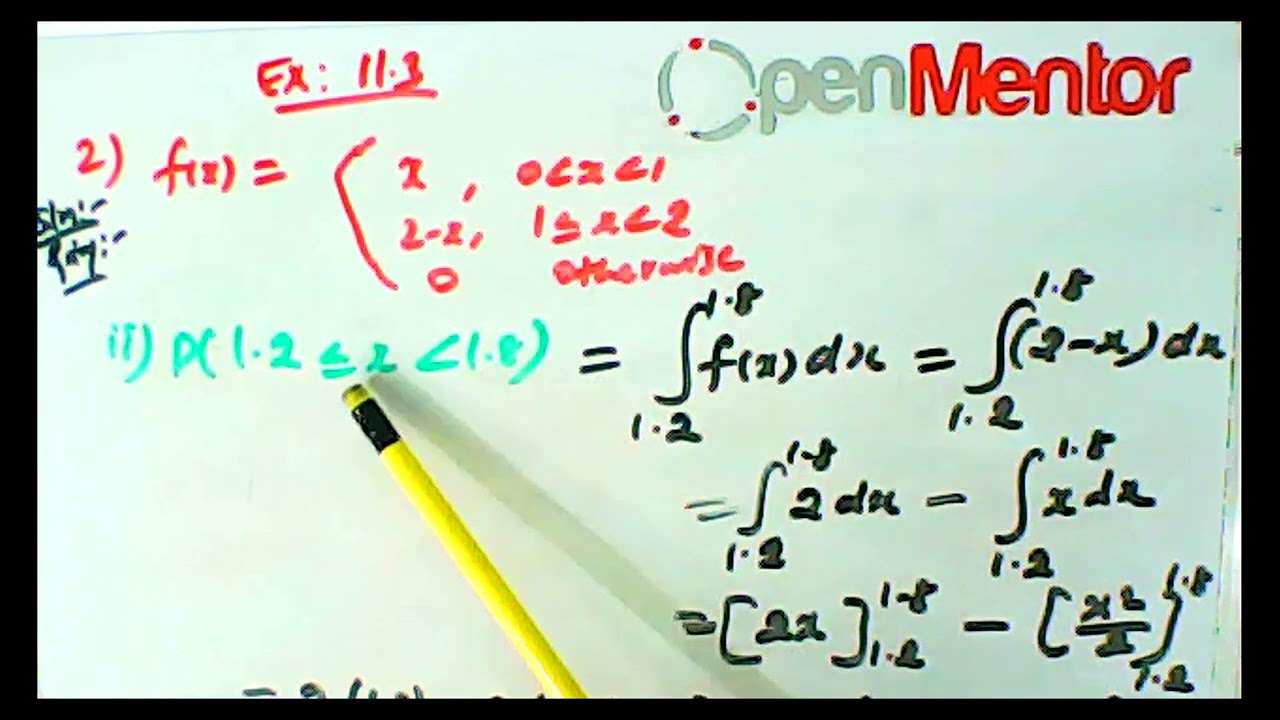 Ex: 11.3
OpenMentor
2) f(x) = { x , 0<x<1
2-x, 1≤x<2
0 otherwise
Soln:-
ii) P(1.2 ≤ x < 1.8) = ∫_{1.2}^{1.8} f(x) dx = ∫_{1.2}^{1.8} (2-x) dx
= ∫_{1.2}^{1.8} 2 dx - ∫_{1.2}^{1.8} x dx
= [2x]_{1.2}^{1.8} - [x²/2]_{1.2}^{1.8}